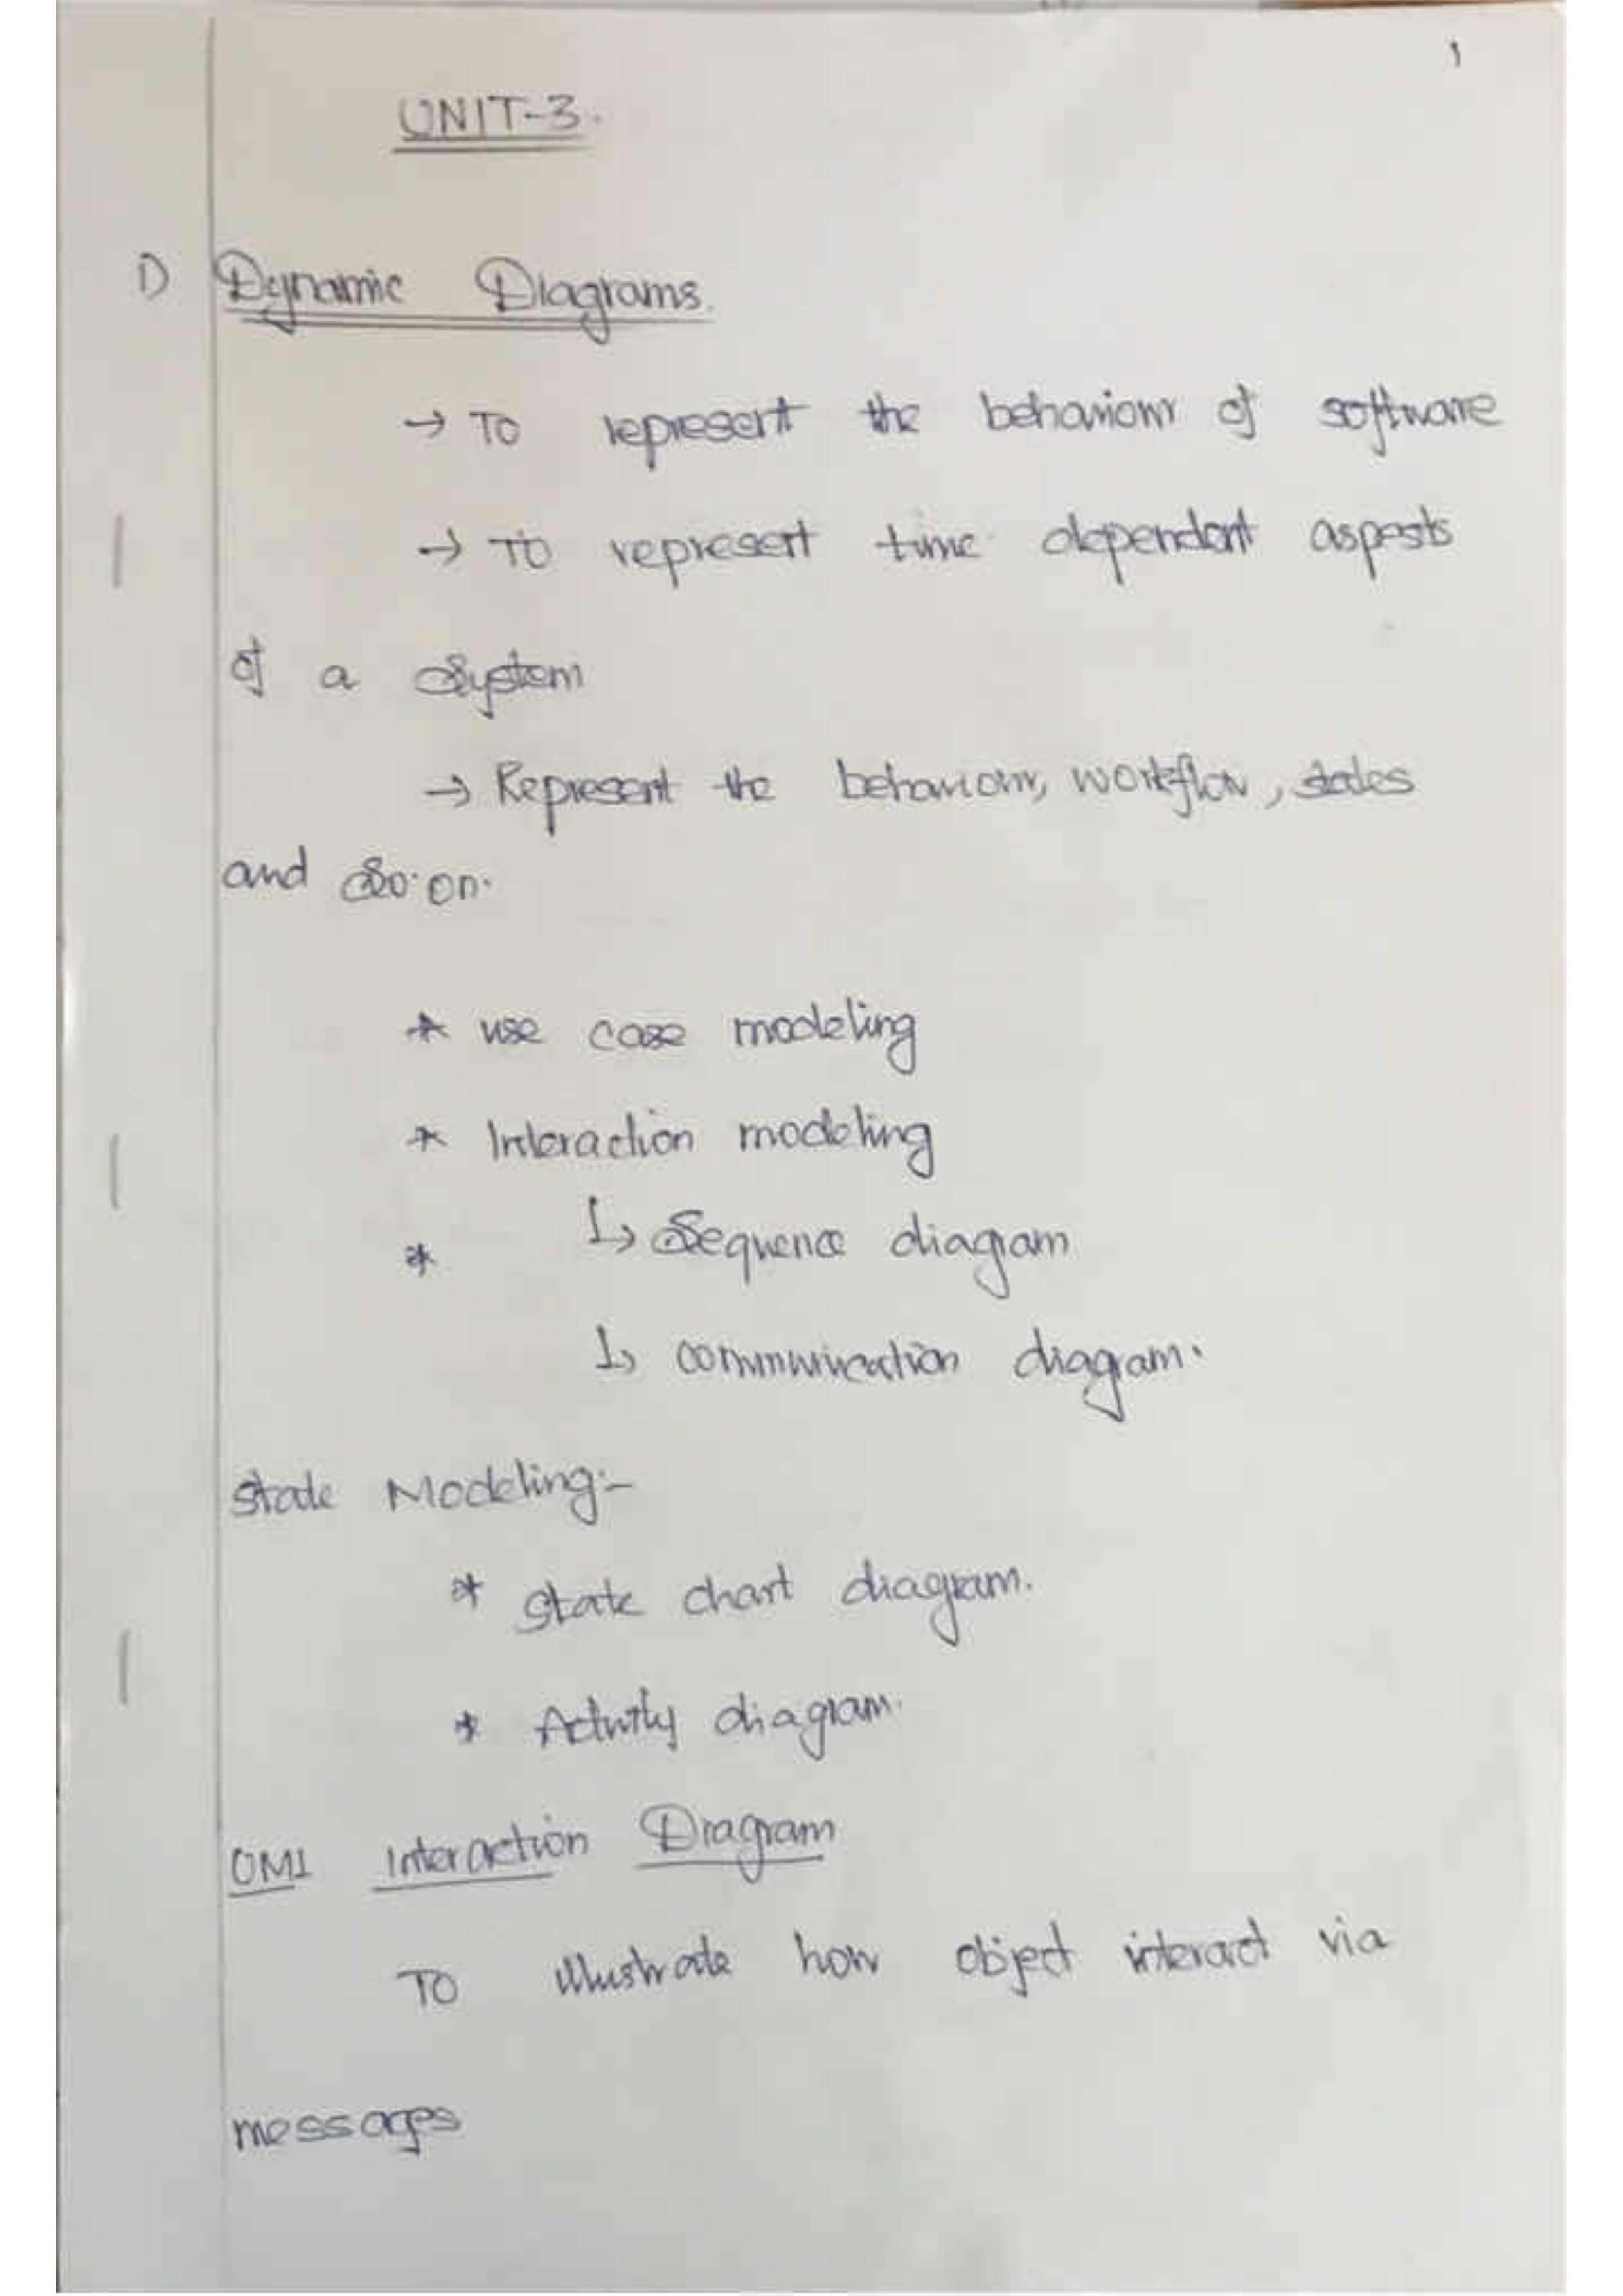 1
UNIT-3.
1) Dynamic Diagrams.
→ To represent the behaviour of software
→ To represent time dependent aspests
of a System
→ Represent the behaviour, workflow, states
and So on.
* use case modeling
* Interaction modeling
↳ Sequence diagram
*
↳ communication diagram.
State Modeling:-
* State chart diagram.
* Activity diagram.
UML Interaction Diagram
To illustrate how object interact via
messages